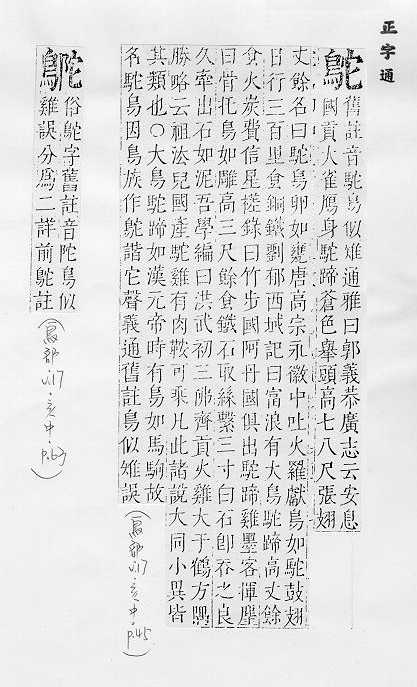 正字通
鴕
舊註音駝鳥似雉通雅曰郭義恭廣志云安息
國貢大雀鴈身駝蹄蒼色舉頭高七八尺張翅
丈餘名曰駝鳥卵如甕唐高宗永徽中吐火羅獻鳥如駝鼓翅
日行三百里食銅鐵劉郁西域記曰富浪有大鳥駝蹄高丈餘
食火炭費信星槎錄曰竹步國阿丹國俱出駝蹄雞墨客揮麈
曰骨托鳥如雕高三尺餘食鐵石取絲繫三寸白石卽吞之良
久牽出石如泥吾學編曰洪武初三佛齊貢火雞大于鶴方輿
勝略云祖法兒國產駝雞有肉鞍可乘凡此諸說大同小異皆
其類也○大鳥駝蹄如漢元帝時有鳥如馬駒故
名駝鳥因鳥族作鴕諧它聲義通舊註鳥似雉誤
(鳥部 v.17・亥中・p.45)
俗鴕字舊註音陀鳥似
雞誤分爲二詳前鴕註
(鳥部 v.17・亥中・p.63)